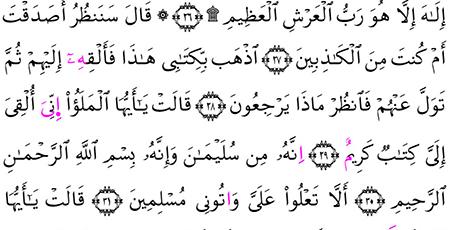 إِلَٰهَ إِلَّا هُوَ رَبُّ الْعَرْشِ الْعَظِيمِ ۩ ﴿٢٦﴾ ۞ قَالَ سَنَنظُرُ أَصَدَقْتَ
أَمْ كُنتَ مِنَ الْكَٰذِبِينَ ﴿٢٧﴾ اَذْهَب بِّكِتَٰبِى هَٰذَا فَأَلْقِهِۦٓ إِلَيْهِمْ ثُمَّ
تَوَلَّ عَنْهُمْ فَانظُرْ مَاذَا يَرْجِعُونَ ﴿٢٨﴾ قَالَتْ يَٰٓأَيُّهَا الْمَلَؤُا۟ إِنِّىَ أُلْقِىَ
إِلَىَّ كِتَٰبٌ كَرِيمٌ ﴿٢٩﴾ اِنَّهُۥ مِن سُلَيْمَٰنَ وَإِنَّهُۥ بِسْمِ اللَّهِ الرَّحْمَٰنِ
الرَّحِيمِ ﴿٣٠﴾ أَلَّا تَعْلُوا۟ عَلَىَّ وَاتُونِى مُسْلِمِينَ ﴿٣١﴾ قَالَتْ يَٰٓأَيُّهَا